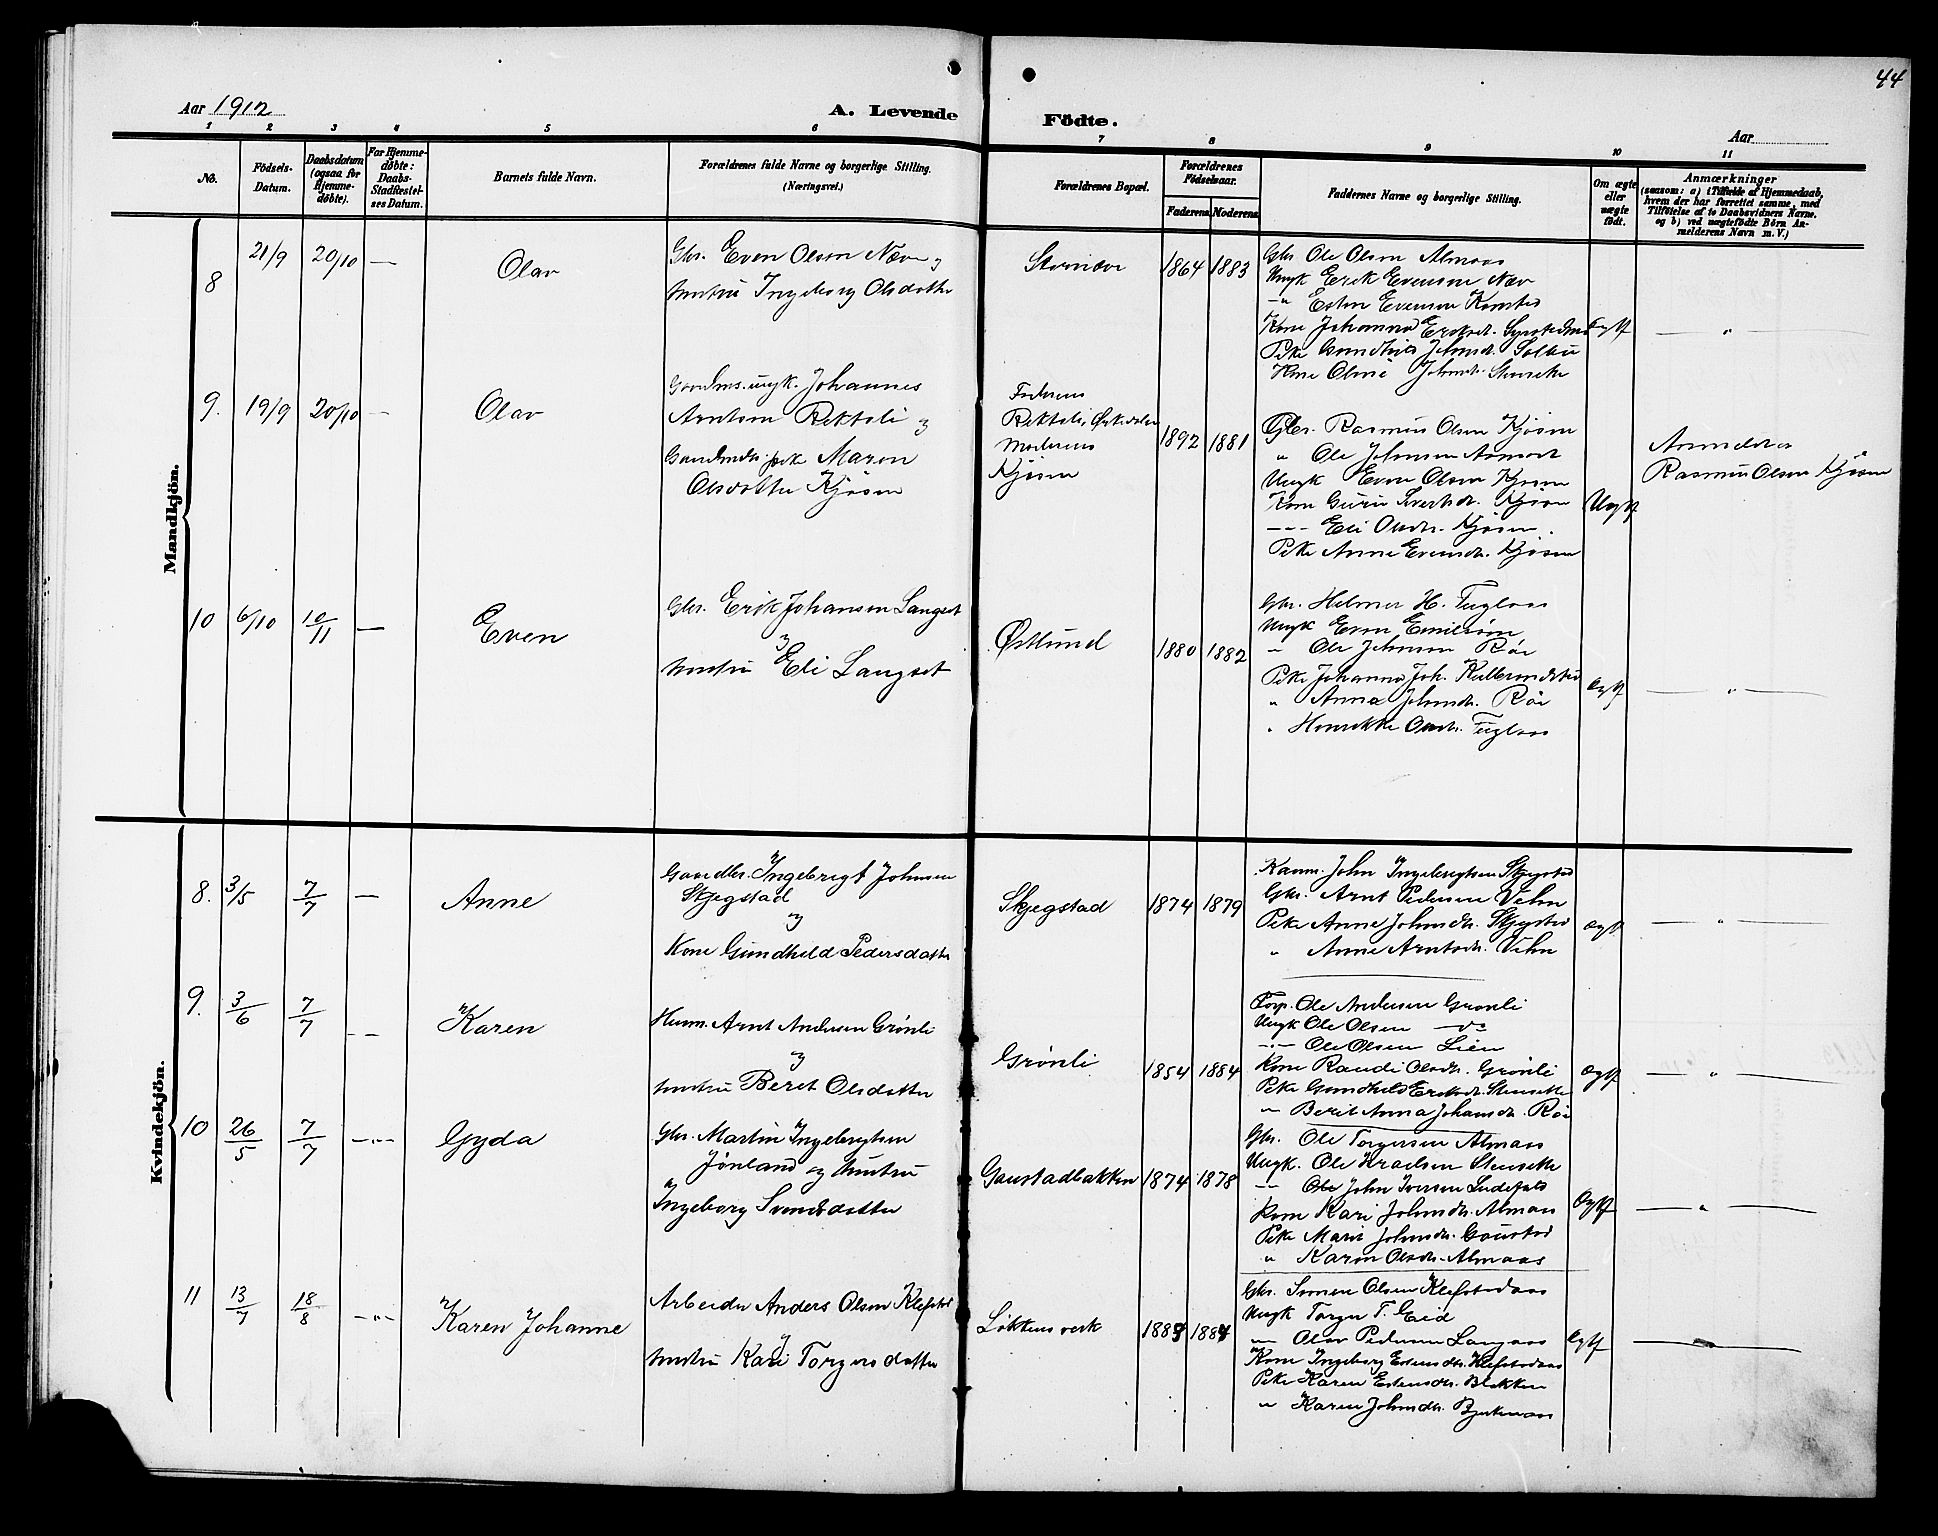 44
Aar 1912
A. Levende
Födte.
Aar
1 2 3 4 5 6 7 8 9 10 11
No.
Födsels-Datum.
Daabsdatum (ogsaa for Hjemme-døbte).
For Hjemme-døbte: Daabs-Stadfæstel-ses Datum.
Barnets fulde Navn.
Forældrenes fulde Navne og borgerlige Stilling.
(Næringsvei.)
Forældrenes Bopæl.
Forældrenes Födselsaar.
Faderens Moderens
Faddernes Navne og borgerlige Stilling.
Om ægte eller uægte födt.
Anmærkninger
(saasom: a) i Tilfælde af Hjemmedaab, hvem der har forrettet samme, med Tilföielse af to Daabsvidners Navne, og b) ved uægtefödte Börn Anmelderens Navn m. V.)
Mandkjön.
8 21/9 20/10 — Olav
Gbr. Even Olsen Næv og
hustru Ingeborg Olsdatter
1864 1883
Gbr Ole Olsen Almaas
Ungk Erik Evensen Næv
" Esten Evensen
Kone Johanna Eriksd.
Pike Johnsd. Solbu
Kone Oline Johnsd. Stenseth
Ægtf — " —
9. 19/9 20/10 — Olav
Gaardms. ungk. Johannes
Arntsen Rektsli og
pike Maren
Olsdatter Kjøsen
Faderens
Rektsli, Orkedalen
Moderens
Kjøsen
1892 1881
Gbr. Rasmus Olsen Kjøsen
" Ole Johnsen
Ungk Even Olsen Kjøsen
Kone Guru Sivertsd. Kjøsen
— " — Eli Olsdtr. Kjøsen
Pike Anne Evensd. Kjøsen
Uægtf
Anmelder
Rasmus Olsen Kjøsen
10 6/10 10/11 — Even
Gbr. Erik Johansen Langset
og
hustru Eli Langset
Østlund
1880 1882
Gbr. Helmer H. Fuglaas
Ungk Even
" Ole Johnsen Røe
Pike Johanna Joh.
" Anna Johnsdtr. Røe
" Henrikke Olsdtr. Fuglaas
Ægtf — " —
Kvindekjön.
8. 3/5 7/7 — Anne
Gaardbr. Ingebrigt Johnsen
Skjegstad
og
Kone Gundhild Pedersdatter
Skjegstad
1874 1879
Kaarm. John Ingebrigtsen Skjegstad
Gbr. Arnt Pedersen
Pike Anne Johnsdtr. Skjegstad
" Anne Arntsdtr.
Ægtf — " —
9. 3/6 7/7 — Karen
Husm. Arnt Andersen Grønli
og
hustru Beret Olsdatter
Grønli
1854 1884
Forp. Ole Andersen Grønli
Ungk Ole Olsen —do
— " — Ole Olsen Lien
Kone Randi Olsdtr. Grønli
Pike Gundhild Eriksdtr. Stensette
" Berit Anna Johansdtr. Røe
Ægtf — " —
10 26/5 7/7 — " — Gyda
Gbr. Martin Ingebrigtsen
Jønland og hustru
Ingeborg Svendsdatter
Gaustadbakken
1874 1878
Gbr. Ole Torgersen Almaas
Ungk. Ole Stensette
" Ole John Iversen
Kone Kari Johnsdtr. Almaas
Pike Marit Johnsdtr. Gaustad
" Karen Olsdtr. Almaas
Ægtf — " —
11 13/7 18/8 — " — Karen Johanne
Arbeider Anders Olsen Klefstad
og
hustru Kari Torgersdatter
Løkkens verk
Gbr. Simen Olsen Klefstadaas
Ungk Torger T. Eid
— Olav Pedersen Langaas
Kone Ingeborg Estensdtr. Klefstadaas
Pike Karen Estensdtr. Blokken
" Karen Johnsdtr. Bjerkenaas
Ægtf